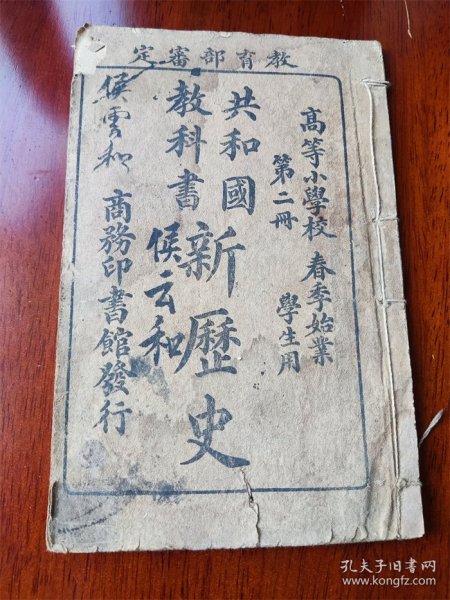 教育部審定
高等小學校 春季始業
第二冊 學生用
共和國
教科書
新歷史
侯云和
侯雲和
商務印書館發行
孔夫子旧书网
www.kongfz.com